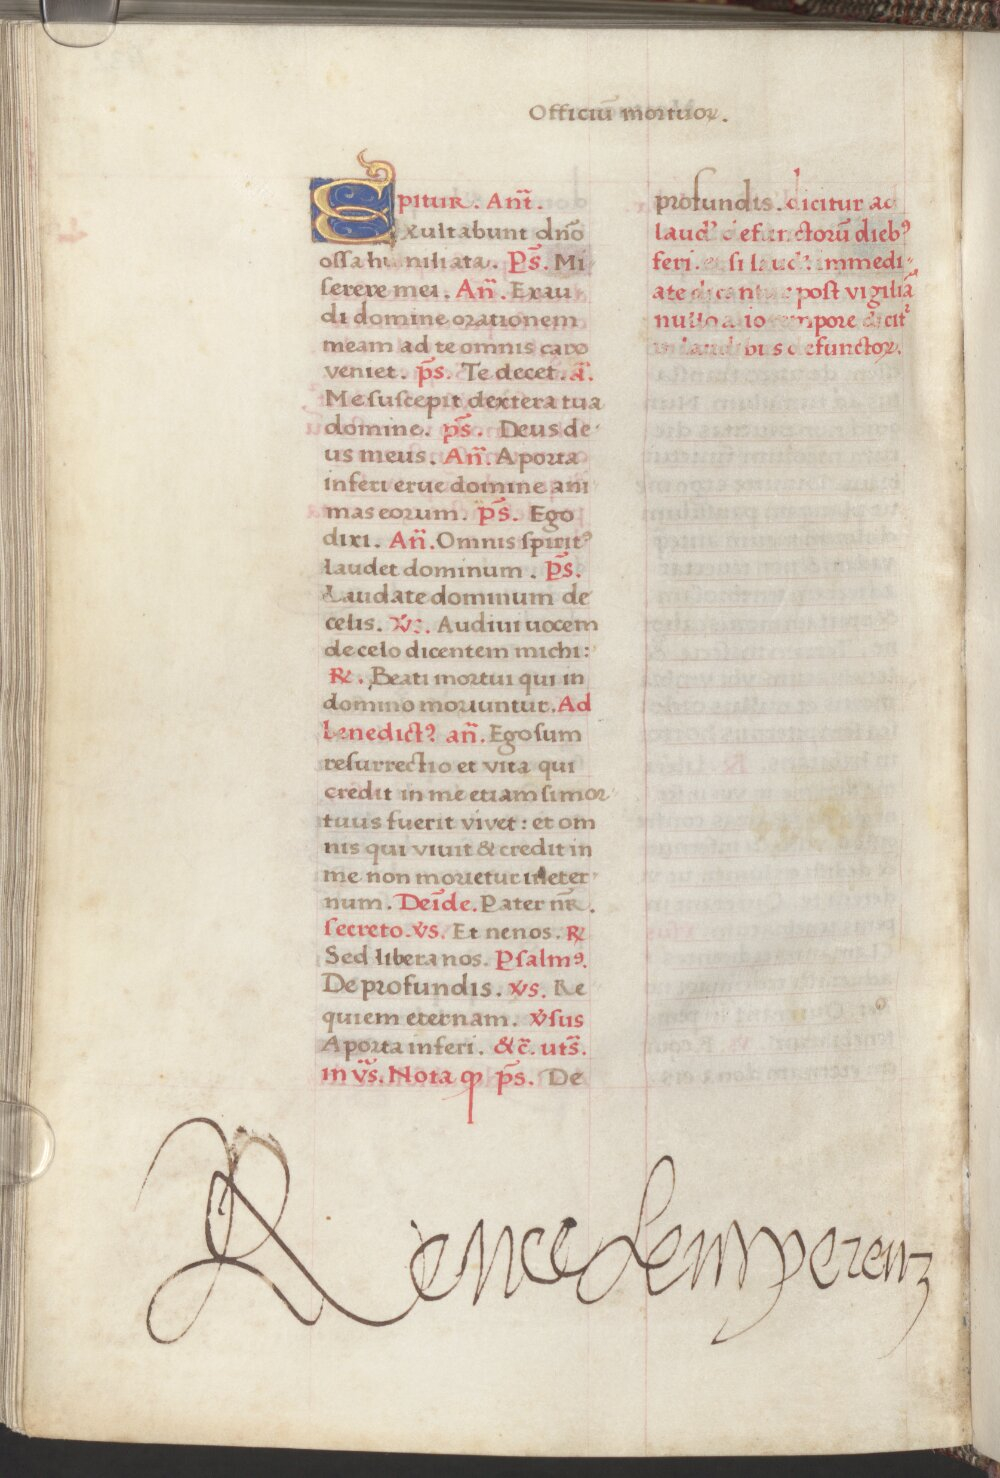 Officiū mortuoꝝ.
pitur. Añt.
Exultabunt dñō
ossa humiliata. P̄s. Mi
serere mei. Añ. Exau
di domine orationem
meam ad te omnis caro
veniet. p̄s. Te decet. ā.
Me suscepit dextera tua
domine. p̄s. Deus de
us meus. Añ. A porta
inferi erue domine ani
mas eorum. p̄s. Ego
dixi. Añ. Omnis spiritꝰ
laudet dominum. P̄s.
Laudate dominum de
celis. v̄s. Audiui uocem
de celo dicentem michi:
R̄. Beati mortui qui in
domino moriuntur. Ad
benedictꝰ añ. Ego sum
resurrectio et vita qui
credit in me etiam si mor
tuus fuerit vivet: et om
nis qui viuit & credit in
me non morietur in eter
num. Deīde. Pater nr̄.
secreto. v̄s. Et ne nos. R̄
Sed libera nos. Psalmꝰ.
De profundis. v̄s. Re
quiem eternam. v̄sus
A porta inferi. &c̄. ut s̄.
in v̄s. Nota ꝙ p̄s. De
profundis. dicitur ad
laud' defunctorū diebꝰ
feri. et si laud' immedi
ate dicantur post vigiliā
nullo alio tempore dicit'
in laudibus defunctoꝝ.